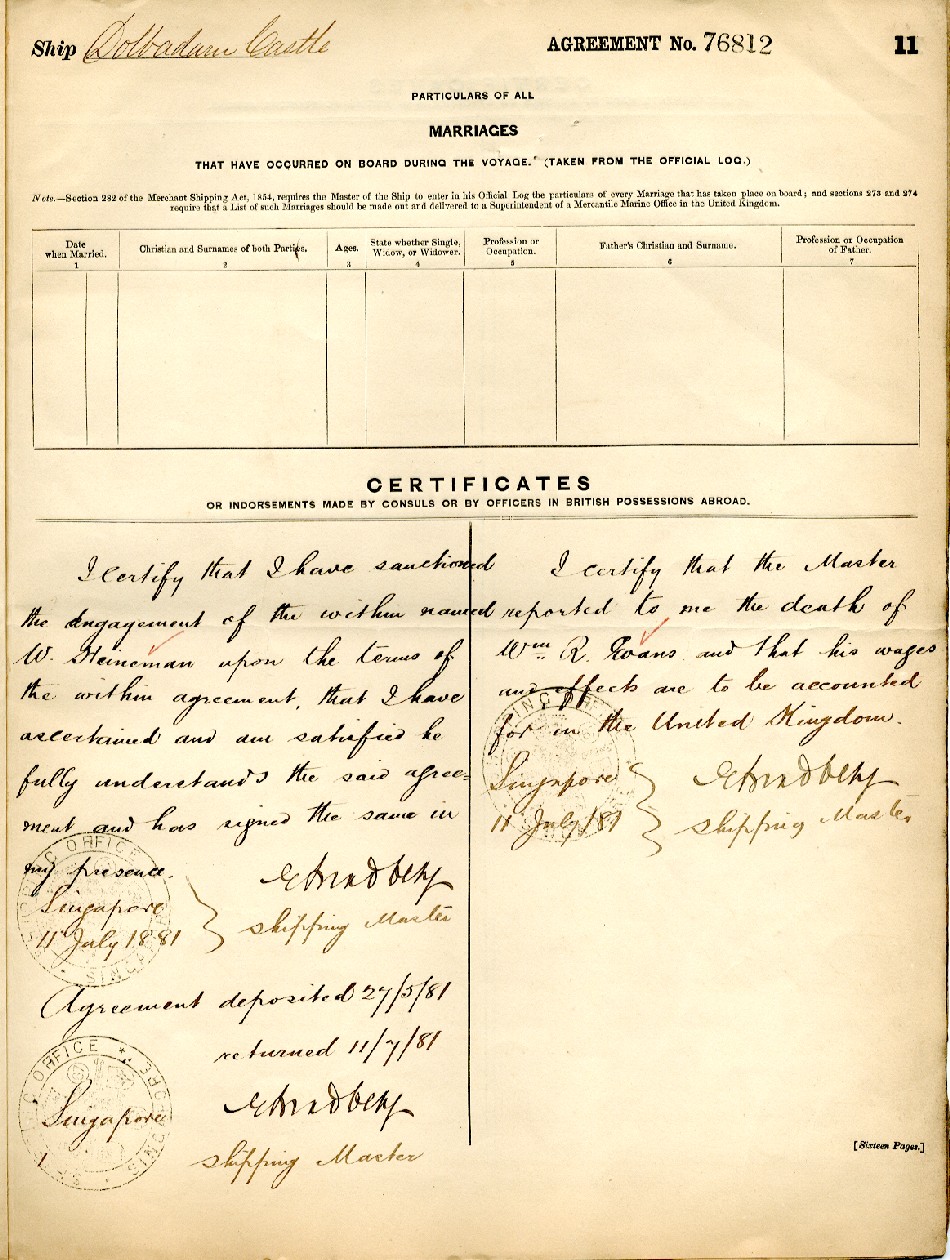 Ship Dolbadarn Castle
AGREEMENT No. 76812
11
PARTICULARS OF ALL
MARRIAGES
THAT HAVE OCCURRED ON BOARD DURING THE VOYAGE. (TAKEN FROM THE OFFICIAL LOG.)
Note.—Section 282 of the Merchant Shipping Act, 1854, requires the Master of the Ship to enter in his Official Log the particulars of every Marriage that has taken place on board; and sections 273 and 274
require that a List of such Marriages should be made out and delivered to a Superintendent of a Mercantile Marine Office in the United Kingdom.
Date
when Married.
1
Christian and Surnames of both Parties.
2
Ages.
3
State whether Single,
Widow, or Widower.
4
Profession or
Occupation.
5
Father's Christian and Surname.
6
Profession or Occupation
of Father.
7
CERTIFICATES
OR INDORSEMENTS MADE BY CONSULS OR BY OFFICERS IN BRITISH POSSESSIONS ABROAD.
I certify that I have sanctioned
the engagement of the within named
W. Heineman upon the terms of
the within agreement, that I have
ascertained and am satisfied he
fully understands the said agree-
ment and has signed the same in
my presence.
Singapore
11 July 1881
Shipping Master
Agreement deposited 27/5/81
returned 11/7/81
Singapore
Shipping Master
I certify that the Master
reported to me the death of
Wm R. Evans and that his wages
and effects are to be accounted
for in the United Kingdom.
Singapore
11 July/81
Shipping Master
[Sixteen Pages.]
OFFICE
SINGAPORE